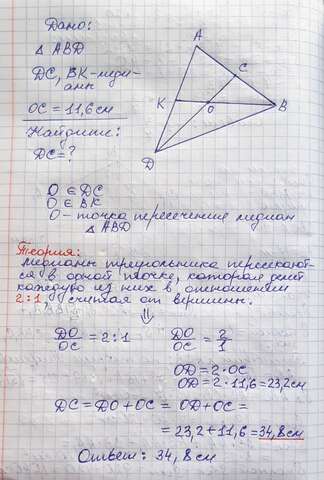 Дано:
△ ABD
DC, BK-меди-
аны
OC = 11,6 см
Найдите:
DC = ?
A
C
K
O
B
D
O ∈ DC
O ∈ BK
O - точка пересечения медиан
△ ABD
Теория:
Медианы треугольника пересекают-
ся в одной точке, которая делит
каждую из них в отношении
2:1 считая от вершины.
⇓
DO/OC = 2:1 DO/OC = 2/1
OD = 2·OC
OD = 2·11,6 = 23,2см
DC = DO + OC = OD + OC =
= 23,2 + 11,6 = 34,8см
Ответ: 34,8см